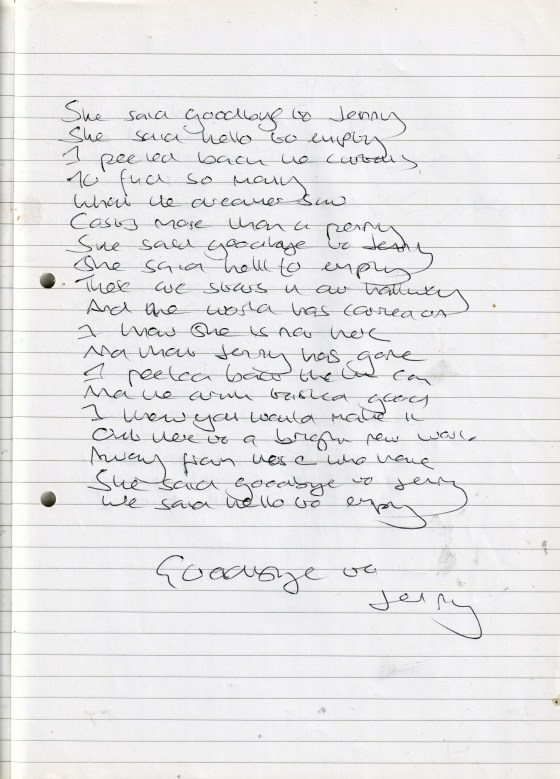 She said goodbye to Jenny
She said hello to empty
I peeled back the
To find so many
What the dreamer saw
Costs more than a penny
She said goodbye to Jenny
She said hell to empty
There are stars in our hallway
And the world has carried on
I know she is not here
And that Jenny has gone
I peeled back the
tasted good
I knew you would make it
Out here to a bright new world
Away from
She said goodbye to Jenny
We said hello to empty
Goodbye to
Jenny